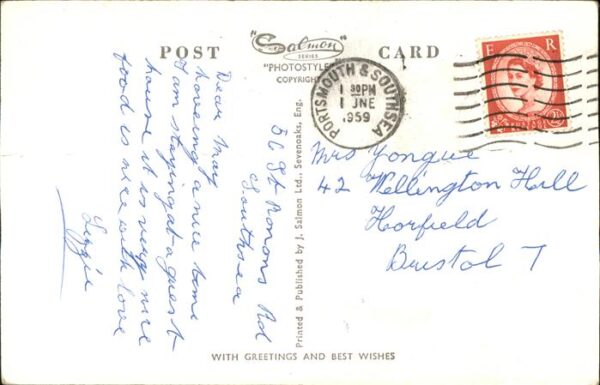 POST CARD
"Salmon
SERIES
"PHOTOSTYLE"
COPYRIGHT
E R
PORTSMOUTH & SOUTHSEA
1 30PM
1 JNE
1959
56 St Ronons Rd
Southsea
Dear May
haveing a nice time
I am staying at a guest
house it is very nice
food is nice with love
Lizzie
Mrs Yongue
42 Wellington Hill
Horfield
Bristol 7
Printed & Published by J. Salmon Ltd., Sevenoaks, Eng.
WITH GREETINGS AND BEST WISHES